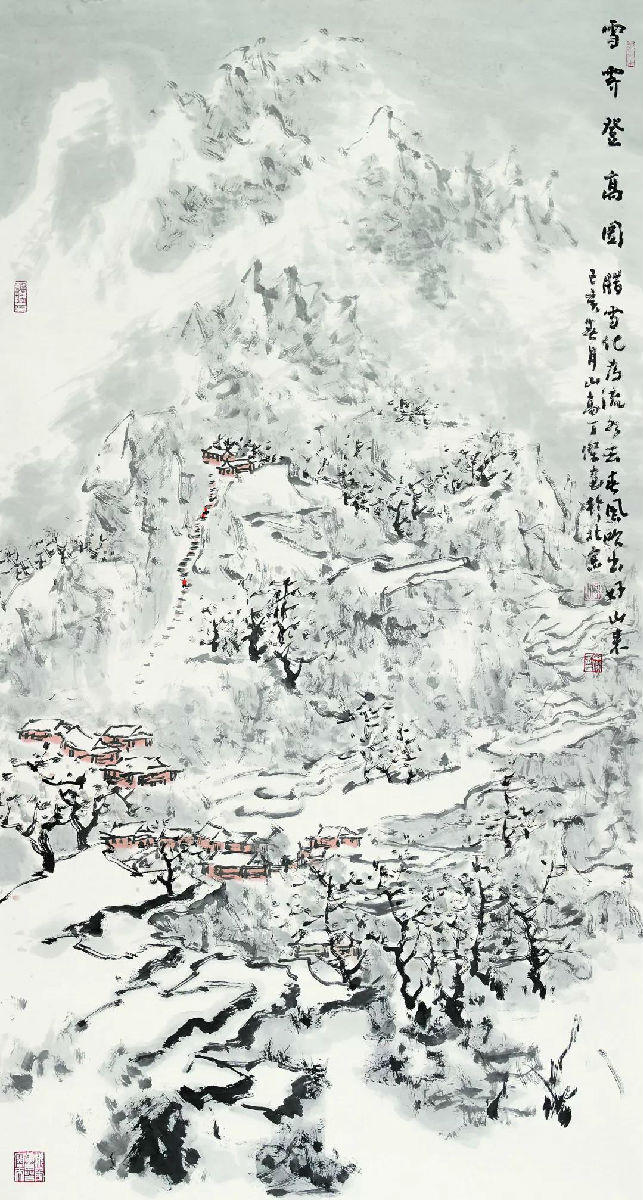 雪霁登高图
腊雪化为流水去春風吹出好山来
己亥春月山高丁傑畫於北京